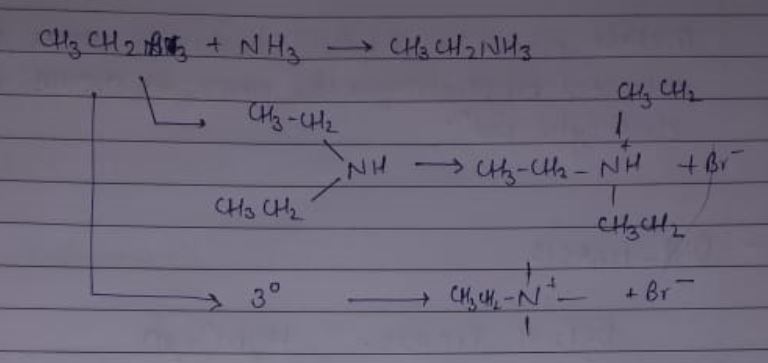 CH3 CH2 + NH3 → CH3CH2NH3
CH3 CH2
CH3-CH2
NH → CH3-CH2-NH + Br-
+
CH3 CH2
CH3CH2
3° → CH3CH2-N+- + Br-